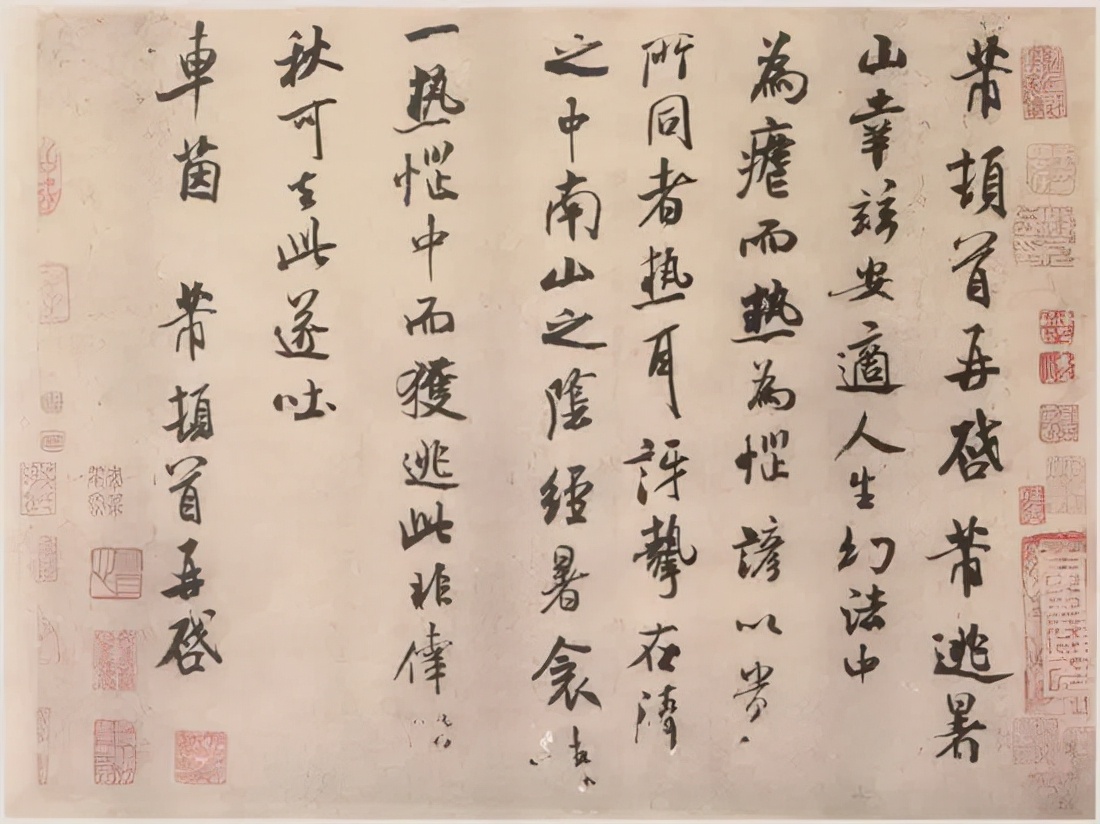 芾頓首再啓芾逃暑
山幸兹安適人生幻法中
為瘧而熱為惱諺以貴
所同者熱耳訝挈在濟
之中南山之陰經暑衾
一熱惱中而獲逃此非倖
秋可去此遂吐
車茵 芾頓首再啓